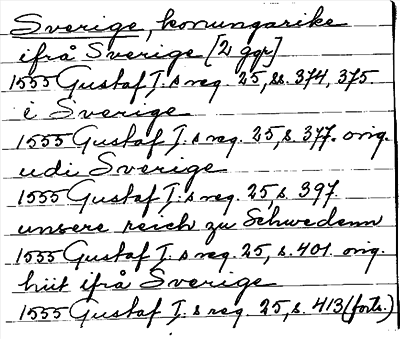 Sverige, konungarike
ifrå Sverige [2 ggr]
1555 Gustaf I:s reg. 25, ss. 374, 375
i Sverige
1555 Gustaf I:s reg. 25, s. 377. orig.
udi Sverige
1555 Gustaf I:s reg. 25, s. 397
unsere reich zu Schwedenn
1555 Gustaf I:s reg. 25, s. 401. orig.
hiit ifrå Sverige
1555 Gustaf I:s reg. 25, s. 413 (forts.)